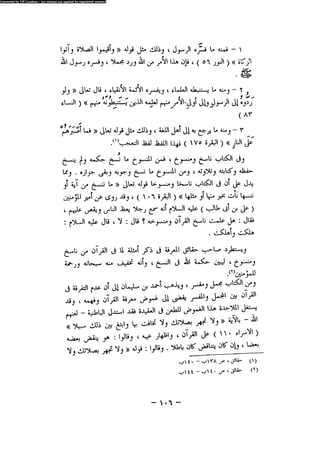 ١ – فمنه ما فسره الرسول ، وذلك مثل قوله « وأقيموا الصلاة وآتوا
الزكاة » ( النور ٥٦ ) ، فإن هذا الأمر من الله ورد مجملا ، وفسره رسول الله
ﷺ .
٢ – ومنه ما يستنبطه العلماء ، ويفسره الأئمة الأتقياء ، قال تعالى « ولو
ردوه إلى الرسول وإلى أولى الأمر منهم لعلمه الذين يستنبطونه منهم » ( النساء
٨٣ )
٣ – ومنه ما يرجع به إلى أهل اللغة ، وذلك مثل قوله تعالى « فما أصبرهم
على النار » ( البقرة ١٧٥ ) فهذا اللفظ لفظ التعجب(١) .
وفى الكتاب ناسخ ومنسوخ ، فمن المنسوخ ما نسخ حكمه ولم ينسخ
حفظه وكتابته وتلاوته ، ومن المنسوخ ما نسخ وجوبه وبقى جوازه . وما
يدل على أن فى الكتاب ناسخا ومنسوخا قوله تعالى « ما ننسخ من آية أو
ننسها نأت بخير منها أو مثلها » ( البقرة ١٠٦ ) ، وقد روى عن أمير المؤمنين
( على بن أبى طالب ) عليه السلام أنه مر برجل يعظ الناس ويقص عليهم ،
فقال : هل علمت ناسخ القرآن ومنسوخه ؟ قال : لا ، فقال عليه السلام :
هلكت وأهلكت .
ويستطرد صاحب حقائق المعرفة فى ذكر أمثلة لما فى القرآن من ناسخ
ومنسوخ ، ليبين حكمة الله فى النسخ ، وأنه تخفيف منه سبحانه ورحمة
للمؤمنين(٢) .
وفى الكتاب مجمل ومفسر ، ويذهب أحمد بن سليمان إلى أن عدم التفرقة فى
القرآن بين المجمل والمفسر يفضى إلى غموض معرفة القرآن وفهمه ، وقد
يستغل الملاحدة هذا الغموض للطعن فى العقيدة فقد استدل الباطنية – لعنهم
الله – بالآية « ولا تجهر بصلاتك ولا تخافت بها وابتغ بين ذلك سبيلا »
( الإسراء ١١٠ ) على القرآن ، وإظهار عيبه ، فقالوا : هو ينقض بعضه
بعضا ، وإن كان يتناقض كان باطلا . فقالوا : قوله « ولا تجهر بصلاتك ولا
(١) حقائق ، ص ١٣٨ب – ١٤٠ب
(٢) حقائق ، ص ١٤٠ب – ١٤٤ب
– ١٠٦ –